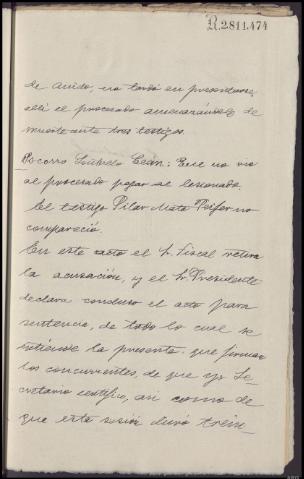 R.2811.474
de Anido, no tardó en presentarse
allí el procesado amenazándole de
muerte ante tres testigos.
Socorro Cean: Que no vio
al procesado pegar al lesionado.
El testigo Pilar Mato no
compareció.
En este acto el Sr. Fiscal retira
la acusación, y el Sr. Presidente
declara concluso el acto para
sentencia, de todo lo cual se
extiende la presente que firman
los concurrentes, de que yo Se-
cretario certifico, asi como de
que esta sesión duró trein-